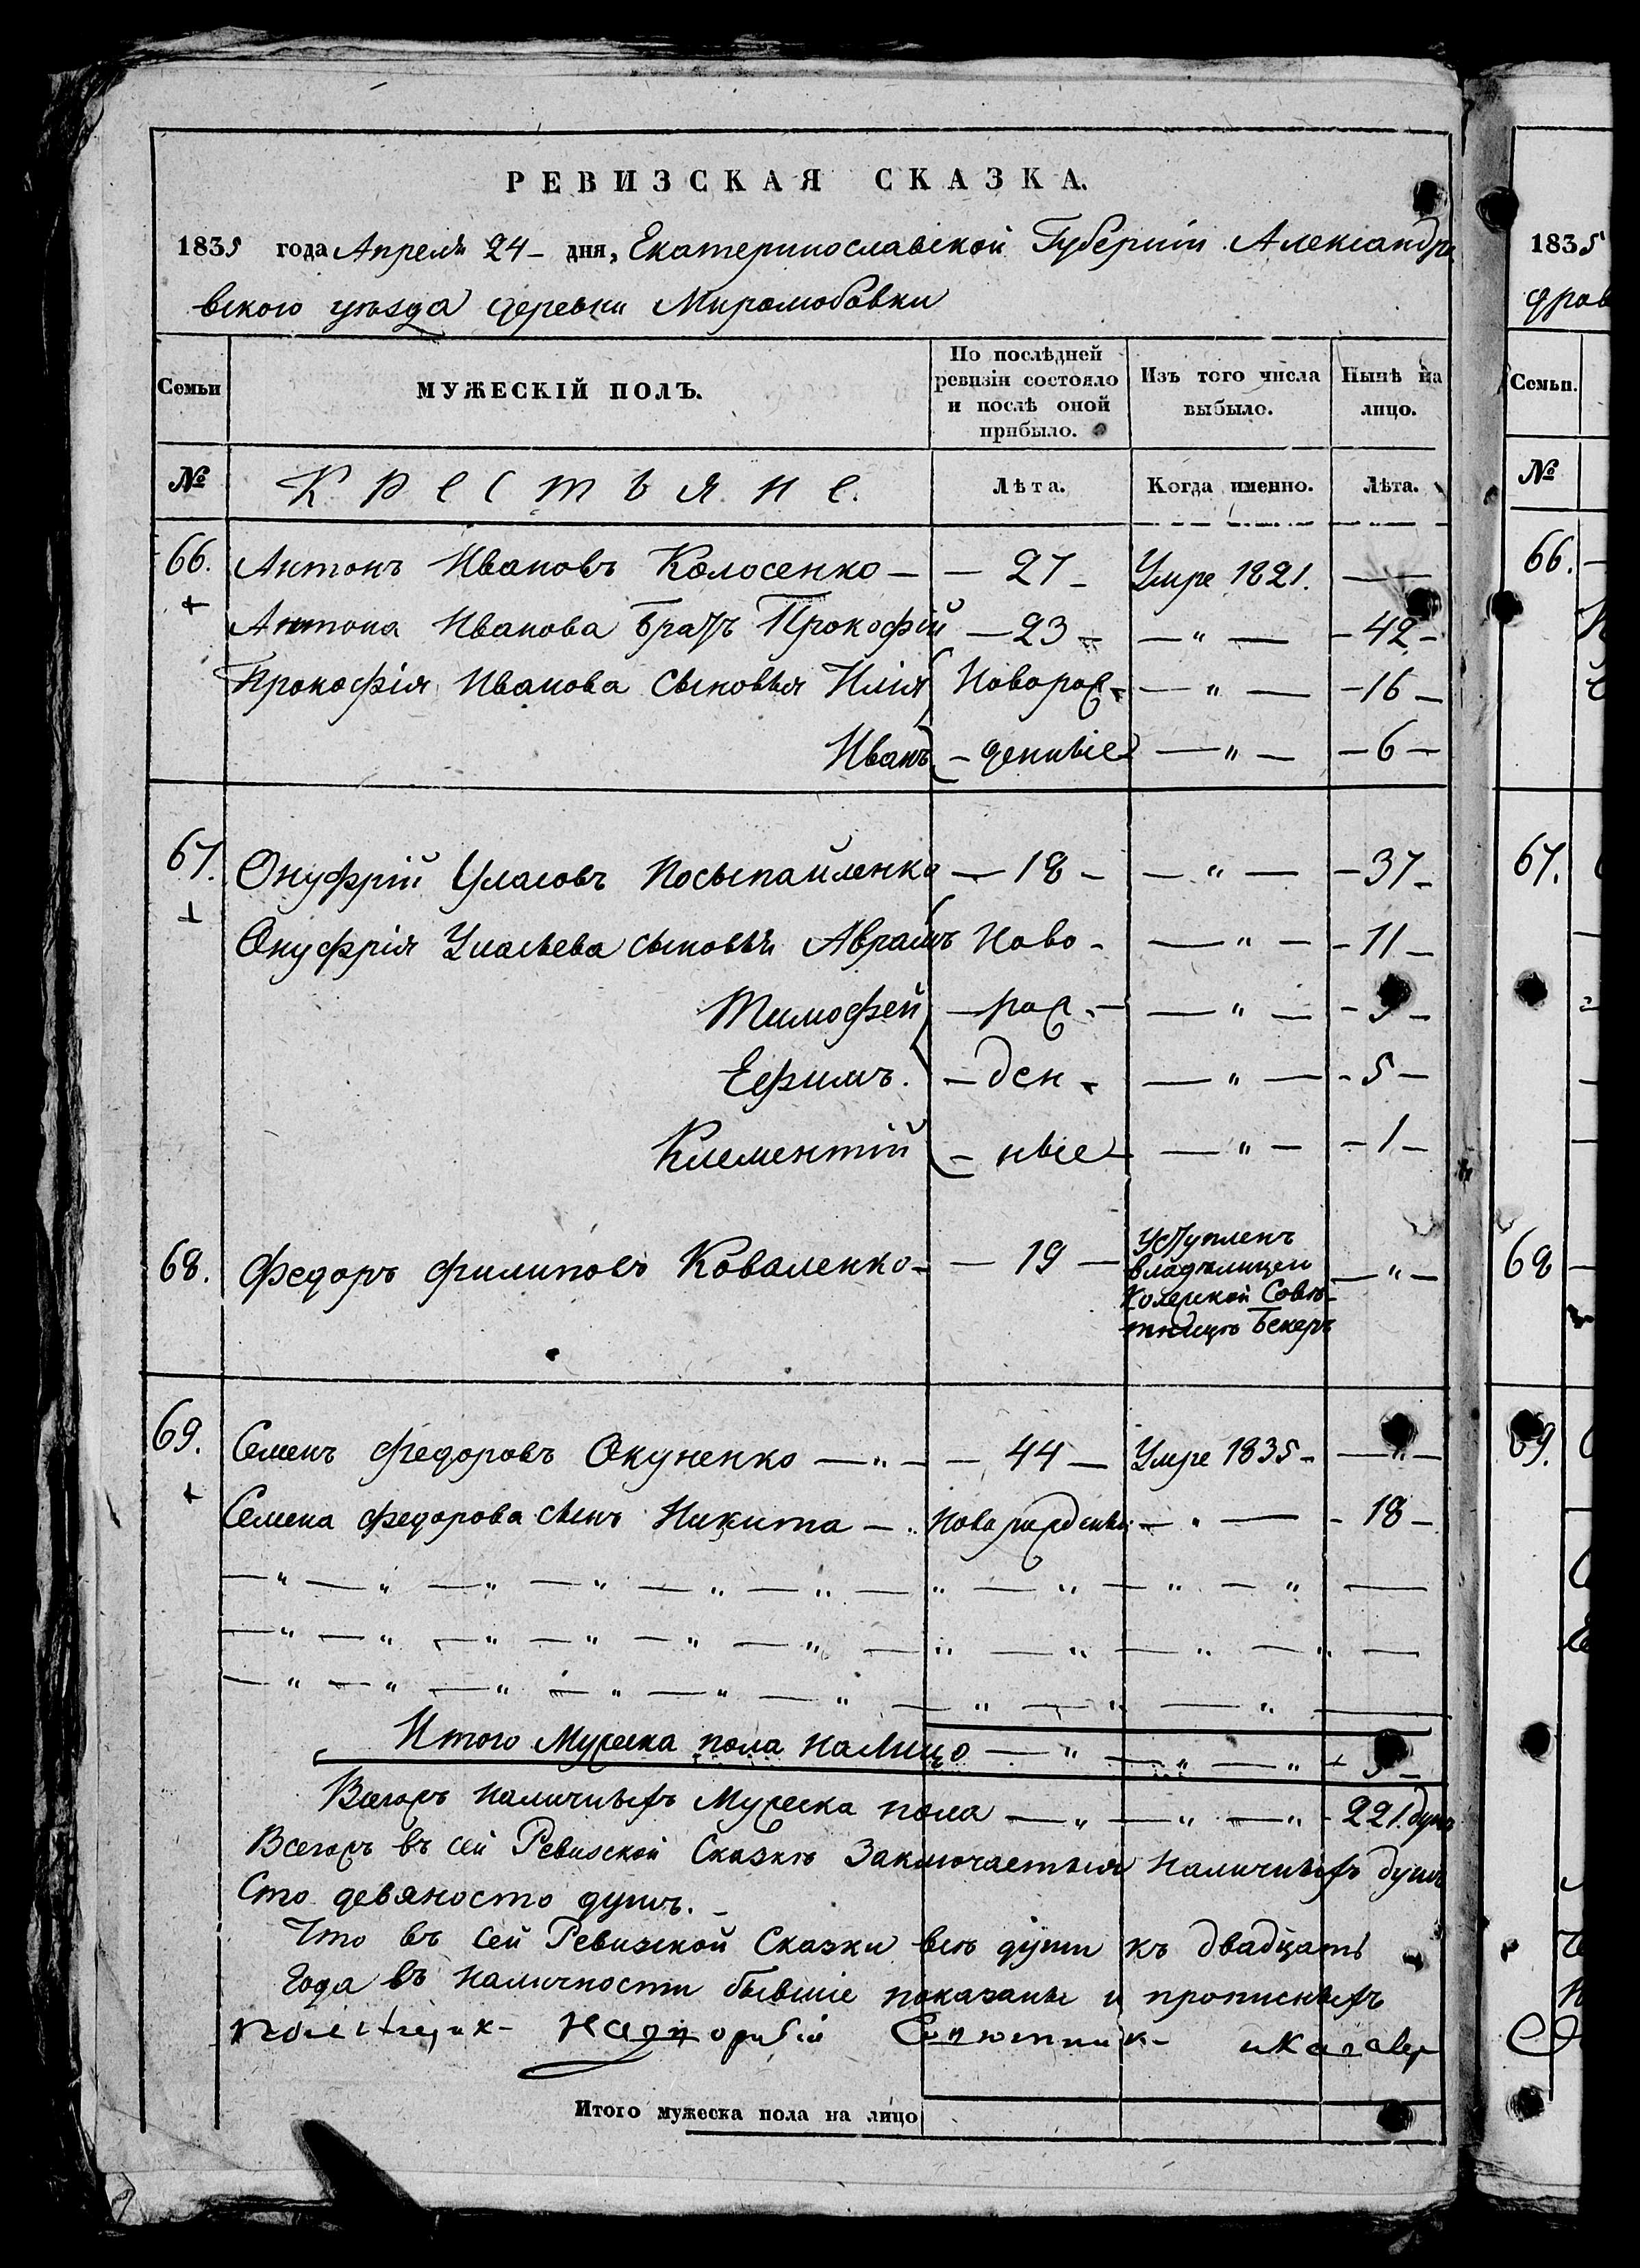 РЕВИЗСКАЯ СКАЗКА.
1835 года Апреля 24 – дня, Екатеринославской Губерніи Александро
вского уѣзда деревни Миролюбовки
Семьи
МУЖЕСКІЙ ПОЛЪ.
По послѣдней ревизіи состояло и послѣ оной прибыло.
Изъ того числа выбыло.
Нынѣ на лицо.
№ Крестьяне. Лѣта. Когда именно. Лѣта.
66. Антонъ Ивановъ Колосенко — — 27 – Умре 1821. —
Антона Иванова братъ Прокофій — 23 – — „ — – 42 –
Прокофія Иванова сыновья Илія Новорож– — „ — – 16 –
Иванъ – денныіе — „ — – 6 –
67. Онуфрій Уласовъ Посыпайленко — 18 – — „ — – 37 –
Онуфрія Власьева сыновья Аврамъ Ново – — „ — – 11 –
Тимофей – рож – — „ — – 9 –
Ефимъ. – ден – — „ — – 5 –
Климентій – ные – — „ — – 1 –
68. Федоръ Филиповъ Коваленко – — 19 — Уступленъ — „ —
владѣлицеи
Колежской Совѣ–
тницѣ Бекеръ
69. Семенъ Федоровъ Окуненко — „ — – 44 — Умре 1835 – — „ —
Семена Федорова сынъ Никита — „ Новорожденный — „ — – 18 –
Итого Мужеска пола налицо — „ — „ — „
Всехъ наличныхъ Мужеска пола — „ — „ — „ – 221. душ
Всехъ въ сей Ревизской Сказкѣ Заключается наличныхъ душъ
Сто девяносто душъ. –
Что въ сей Ревизской Сказки всѣ души къ двадцать
года въ наличности бывшіе показаны и прописныхъ
Итого мужеска пола на лицо
1835
дров
Семьи.
№
66.
67.
68
69.